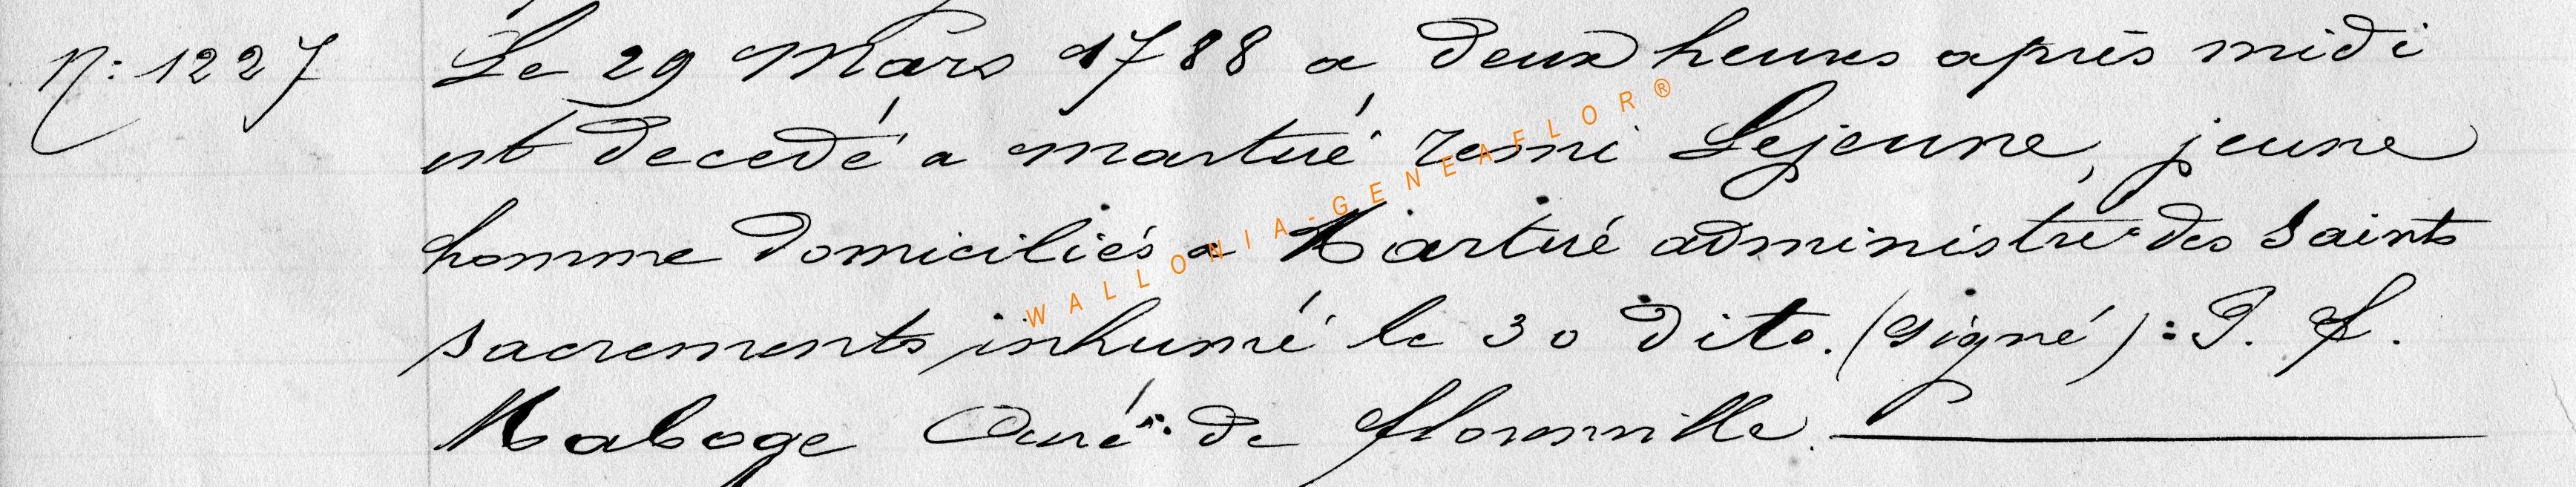 N: 1227
Le 29 Mars 1788 a deux heures après midi
est decedé a martué remi Lejeune, jeune
homme domiciliés a Martué administré des Saints
sacrements inhumé le 30 dito. (signé): J. f.
Maboge Curé de florenville.
WALLONIA-GENEAFLOR®